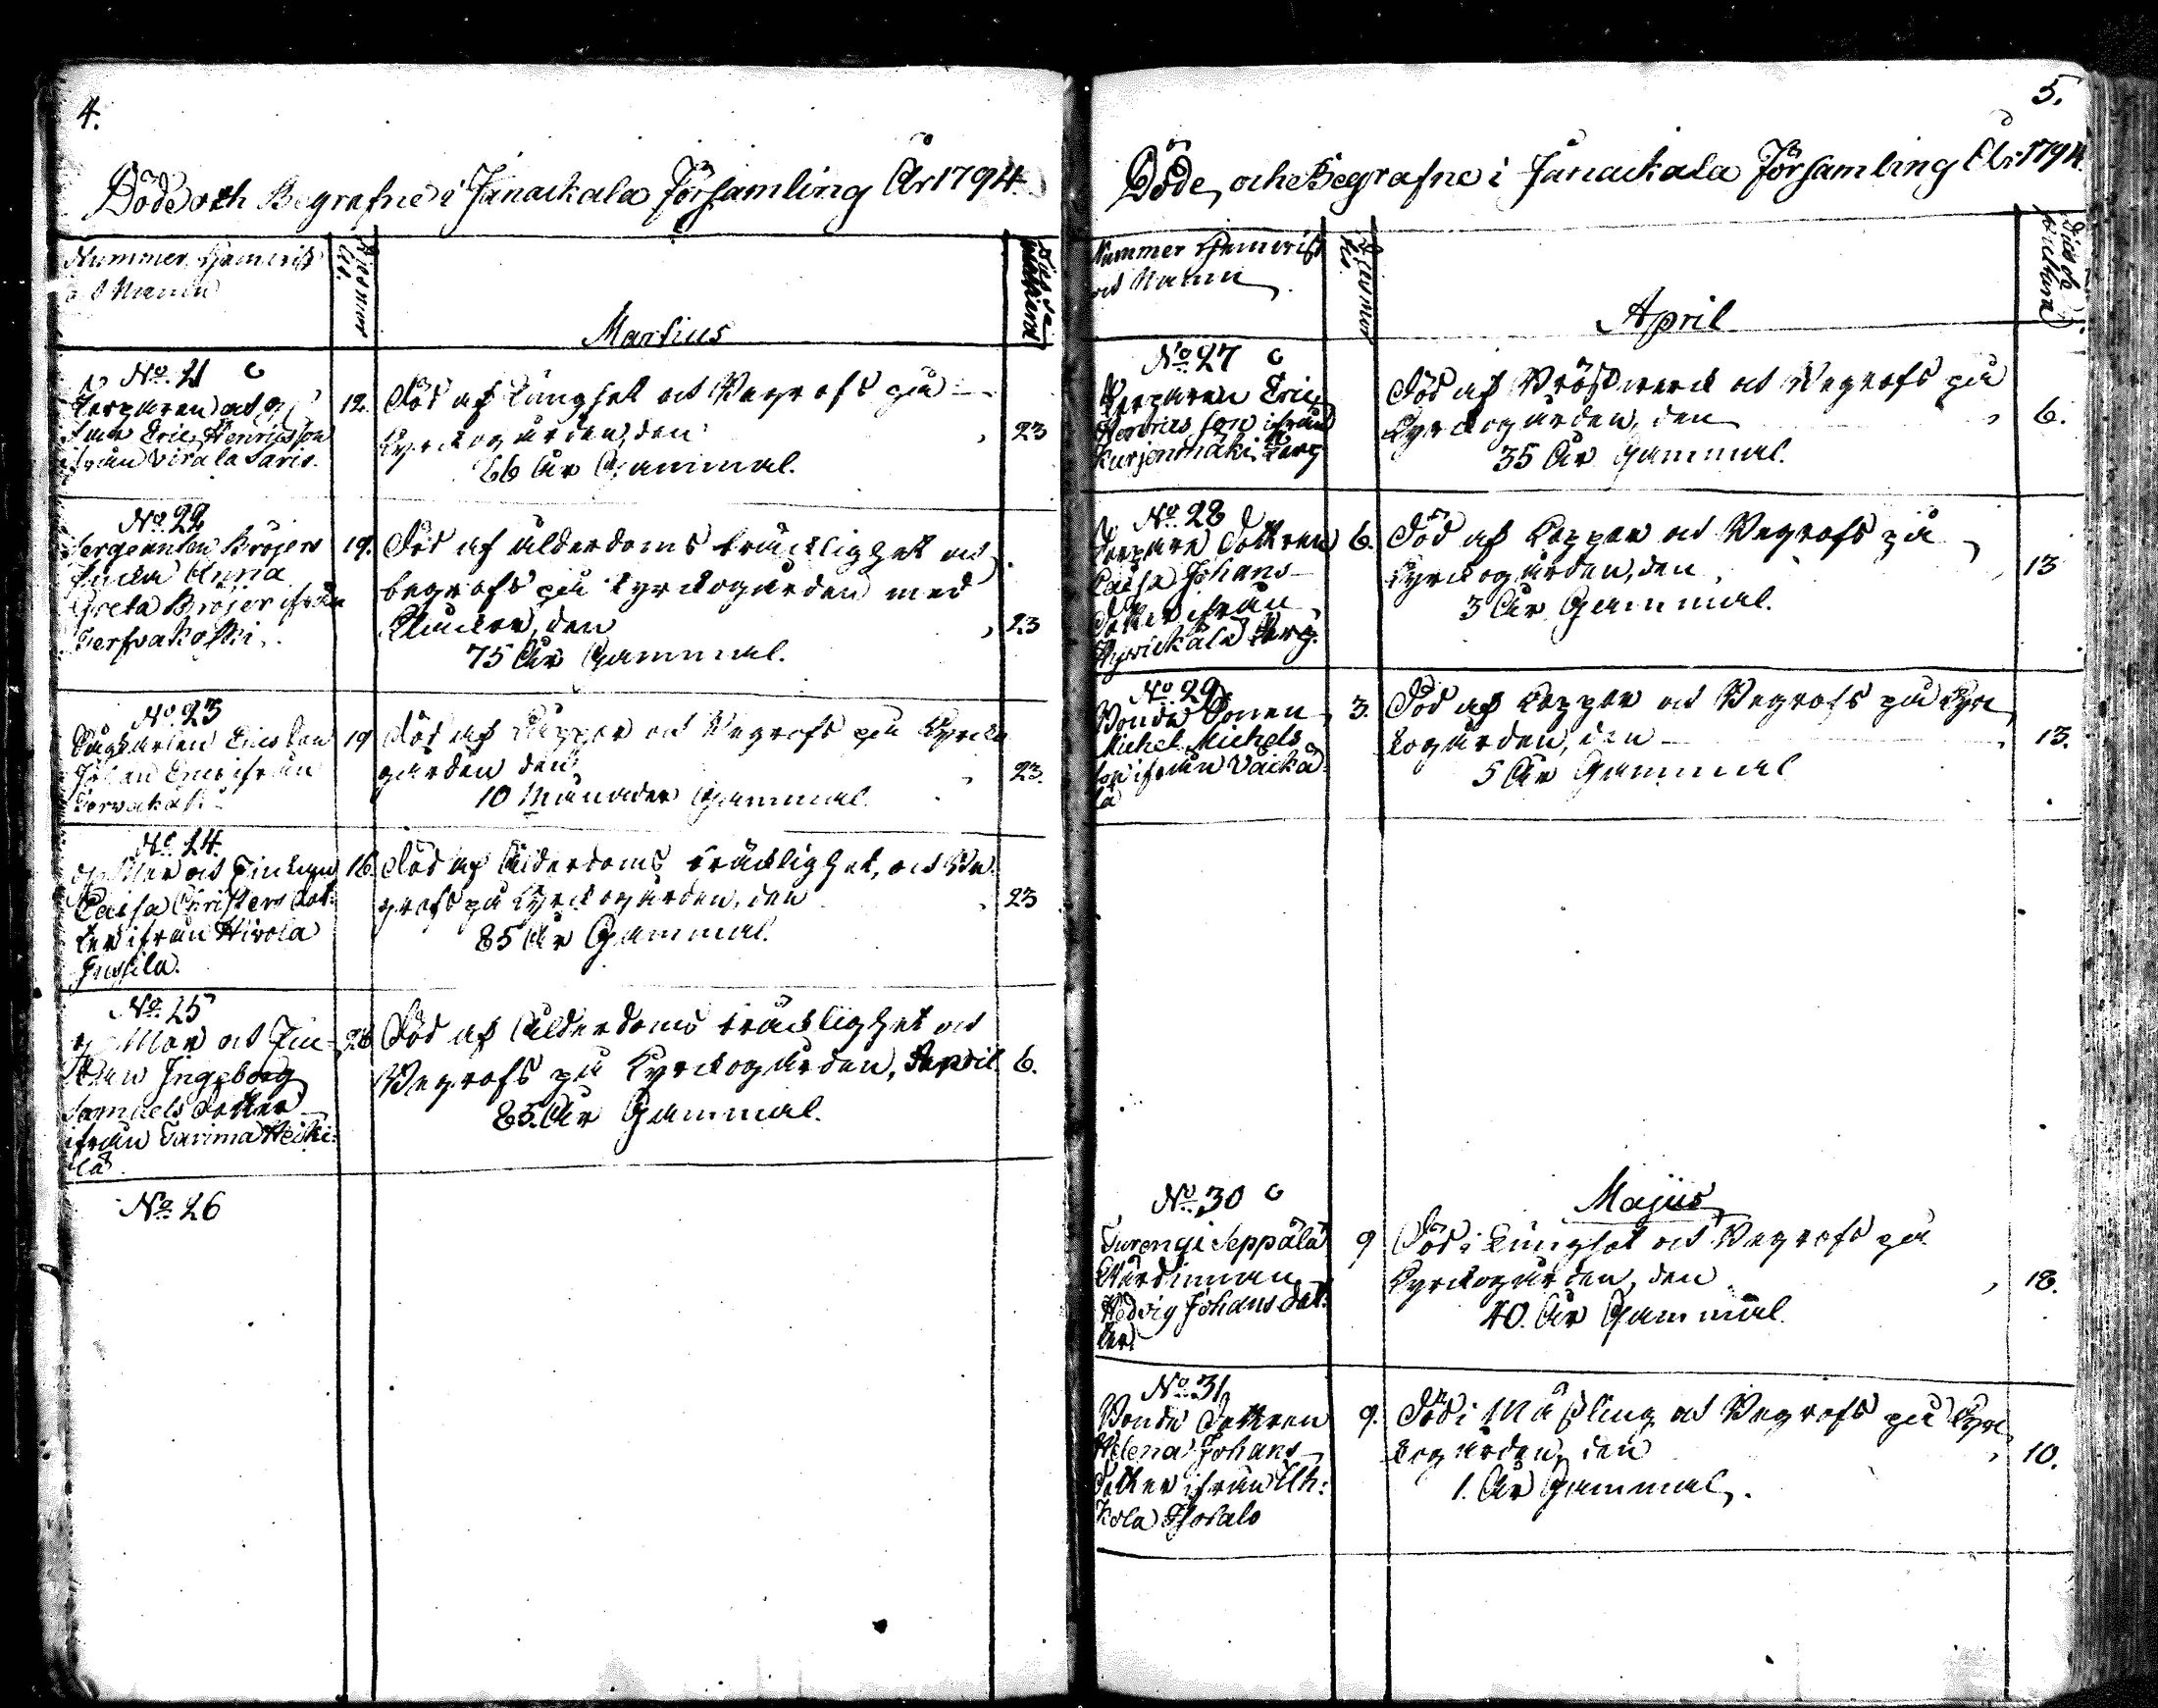 4.
Döde och Begrafne i Janackala Församling År 1794.
Nummer, Hemvist
och Namn
Martius
No. 21
Torparen och
Eric Henricsson
ifrån Virala Saris.
12.
Död af Lungsot och Begrofs på
Kyrckogården, den
66 År Gammal.
23
No. 22
Sergeanten Bröjers
Enckia Anna
Greta Bröjer ifrån
Tervakoski.
19.
Död af ålderdoms bräcklighet och
begrofs på Kyrckogården med
Klockor, den
75 År Gammal.
23
No. 23
Johan Erics ifrån
Tervakoski
19
Död af Koppor och Begrofs på Kyrcko
gården den
10 Månader Gammal.
23.
No. 24.
och Inhyses
Caisa Christers Dot-
ter ifrån Hirola
Jussila.
16.
Död af Ålderdoms bräcklighet, och Be
grofs på Kyrckogården, den
85 År Gammal.
23
No. 25
Ingeborg
Samuels Dotter
ifrån Tarima Heicki:
lä
26
Död af Ålderdoms bräcklighet och
Begrofs på Kyrckogården, April
85. År Gammal.
6.
No. 26
5.
Döde, och Begrafne i Janackala Församling År 1794.
Nummer Hemvist
och Namn
April
No. 27
Torparen Eric
Henrics son ifrån
Kurjenmäki Torp
Död af Bröstwerck och Begrofs på
Kyrckogården, den
35 År Gammal.
6.
No. 28
Torpare Dottren
Caisa Johans
Dotter ifrån
Torp.
6.
Död af Koppor och Begrofs på
Kyrckogården, den
3 År Gammal.
13
No. 29
Bonde Sonen
Michel Michels
son ifrån Väckä
lä
3.
Död af Koppor och Begrofs på Kyrc
kogården, den
5 År Gammal
13.
Majus
No. 30
Turengi Seppälä
Värdinnan
Hedvig Johans Dot:
ter
9
Död i Lungsot och Begrofs på
Kyrckogården, den
40. År Gammal.
18.
No. 31
Bonde Dottren
Helena Johans
Dotter ifrån
9.
Död i Mäßling och Begrofs på Kyrc
kogården, den
1. År Gammal.
10.